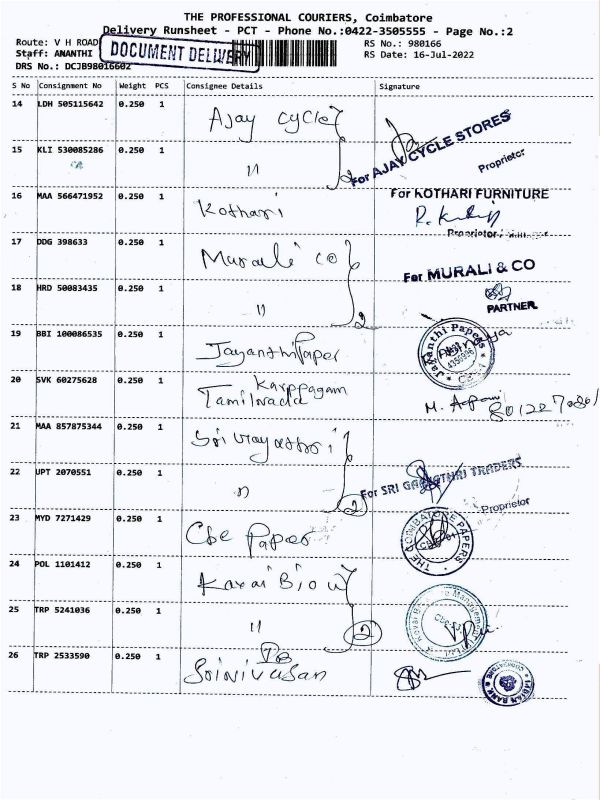 THE PROFESSIONAL COURIERS, Coimbatore
Delivery Runsheet - PCT - Phone No.:0422-3505555 - Page No.:2
Route: V H ROAD
RS No.: 980166
Staff: ANANTHI
DOCUMENT DELIVERY
RS Date: 16-Jul-2022
DRS No.: DCJB98016602
S No Consignment No Weight PCS Consignee Details Signature
14 LDH 505115642 0.250 1 Ajay cycle
15 KLI 530085286 0.250 1 " 2
For AJAY CYCLE STORES
Proprietor
16 MAA 566471952 0.250 1 Kothari
For KOTHARI FURNITURE
Proprietor
17 DDG 398633 0.250 1 Murali co
For MURALI & CO
18 HRD 50083435 0.250 1 " 2
PARTNER
19 BBI 100086535 0.250 1 Jayanthi Paper
Jayanthi Papers
20 SVK 60275628 0.250 1 Karppagam
Tamilnadu
M.
21 MAA 857875344 0.250 1 Sri
22 UPT 2070551 0.250 1 " 2
For SRI GAYATHRI TRADERS
Proprietor
23 MYD 7271429 0.250 1 Cbe Paper
THE COIMBATORE PAPERS
24 POL 1101412 0.250 1 Kovai Bio W
25 TRP 5241036 0.250 1 " 2
26 TRP 2533590 0.250 1 IB
Srinivasan
INDIAN BANK